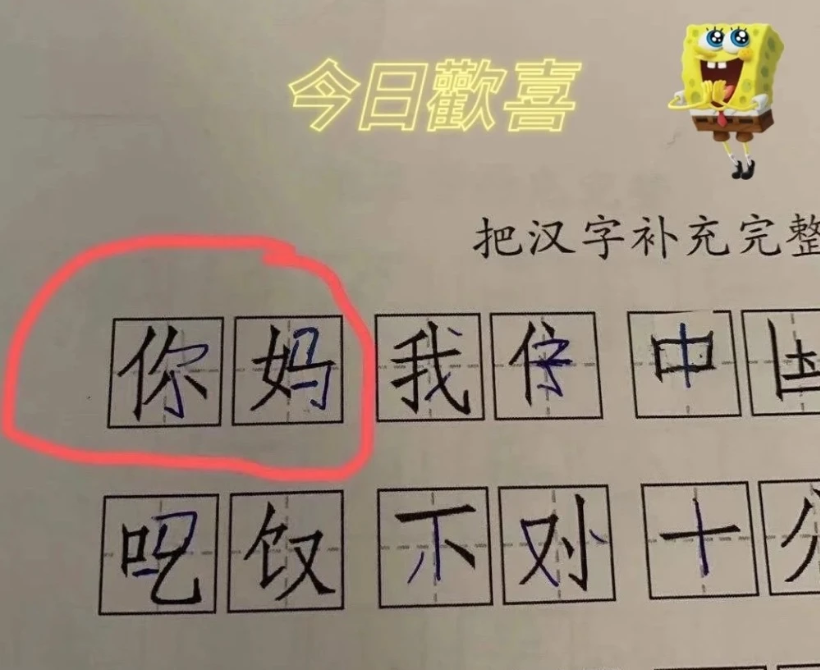 今日歡喜
把汉字补充完整
你妈 我 中国
吃 不对 十分